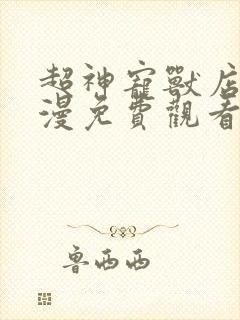 超神寵獸店
漫免費觀看
鲁西西